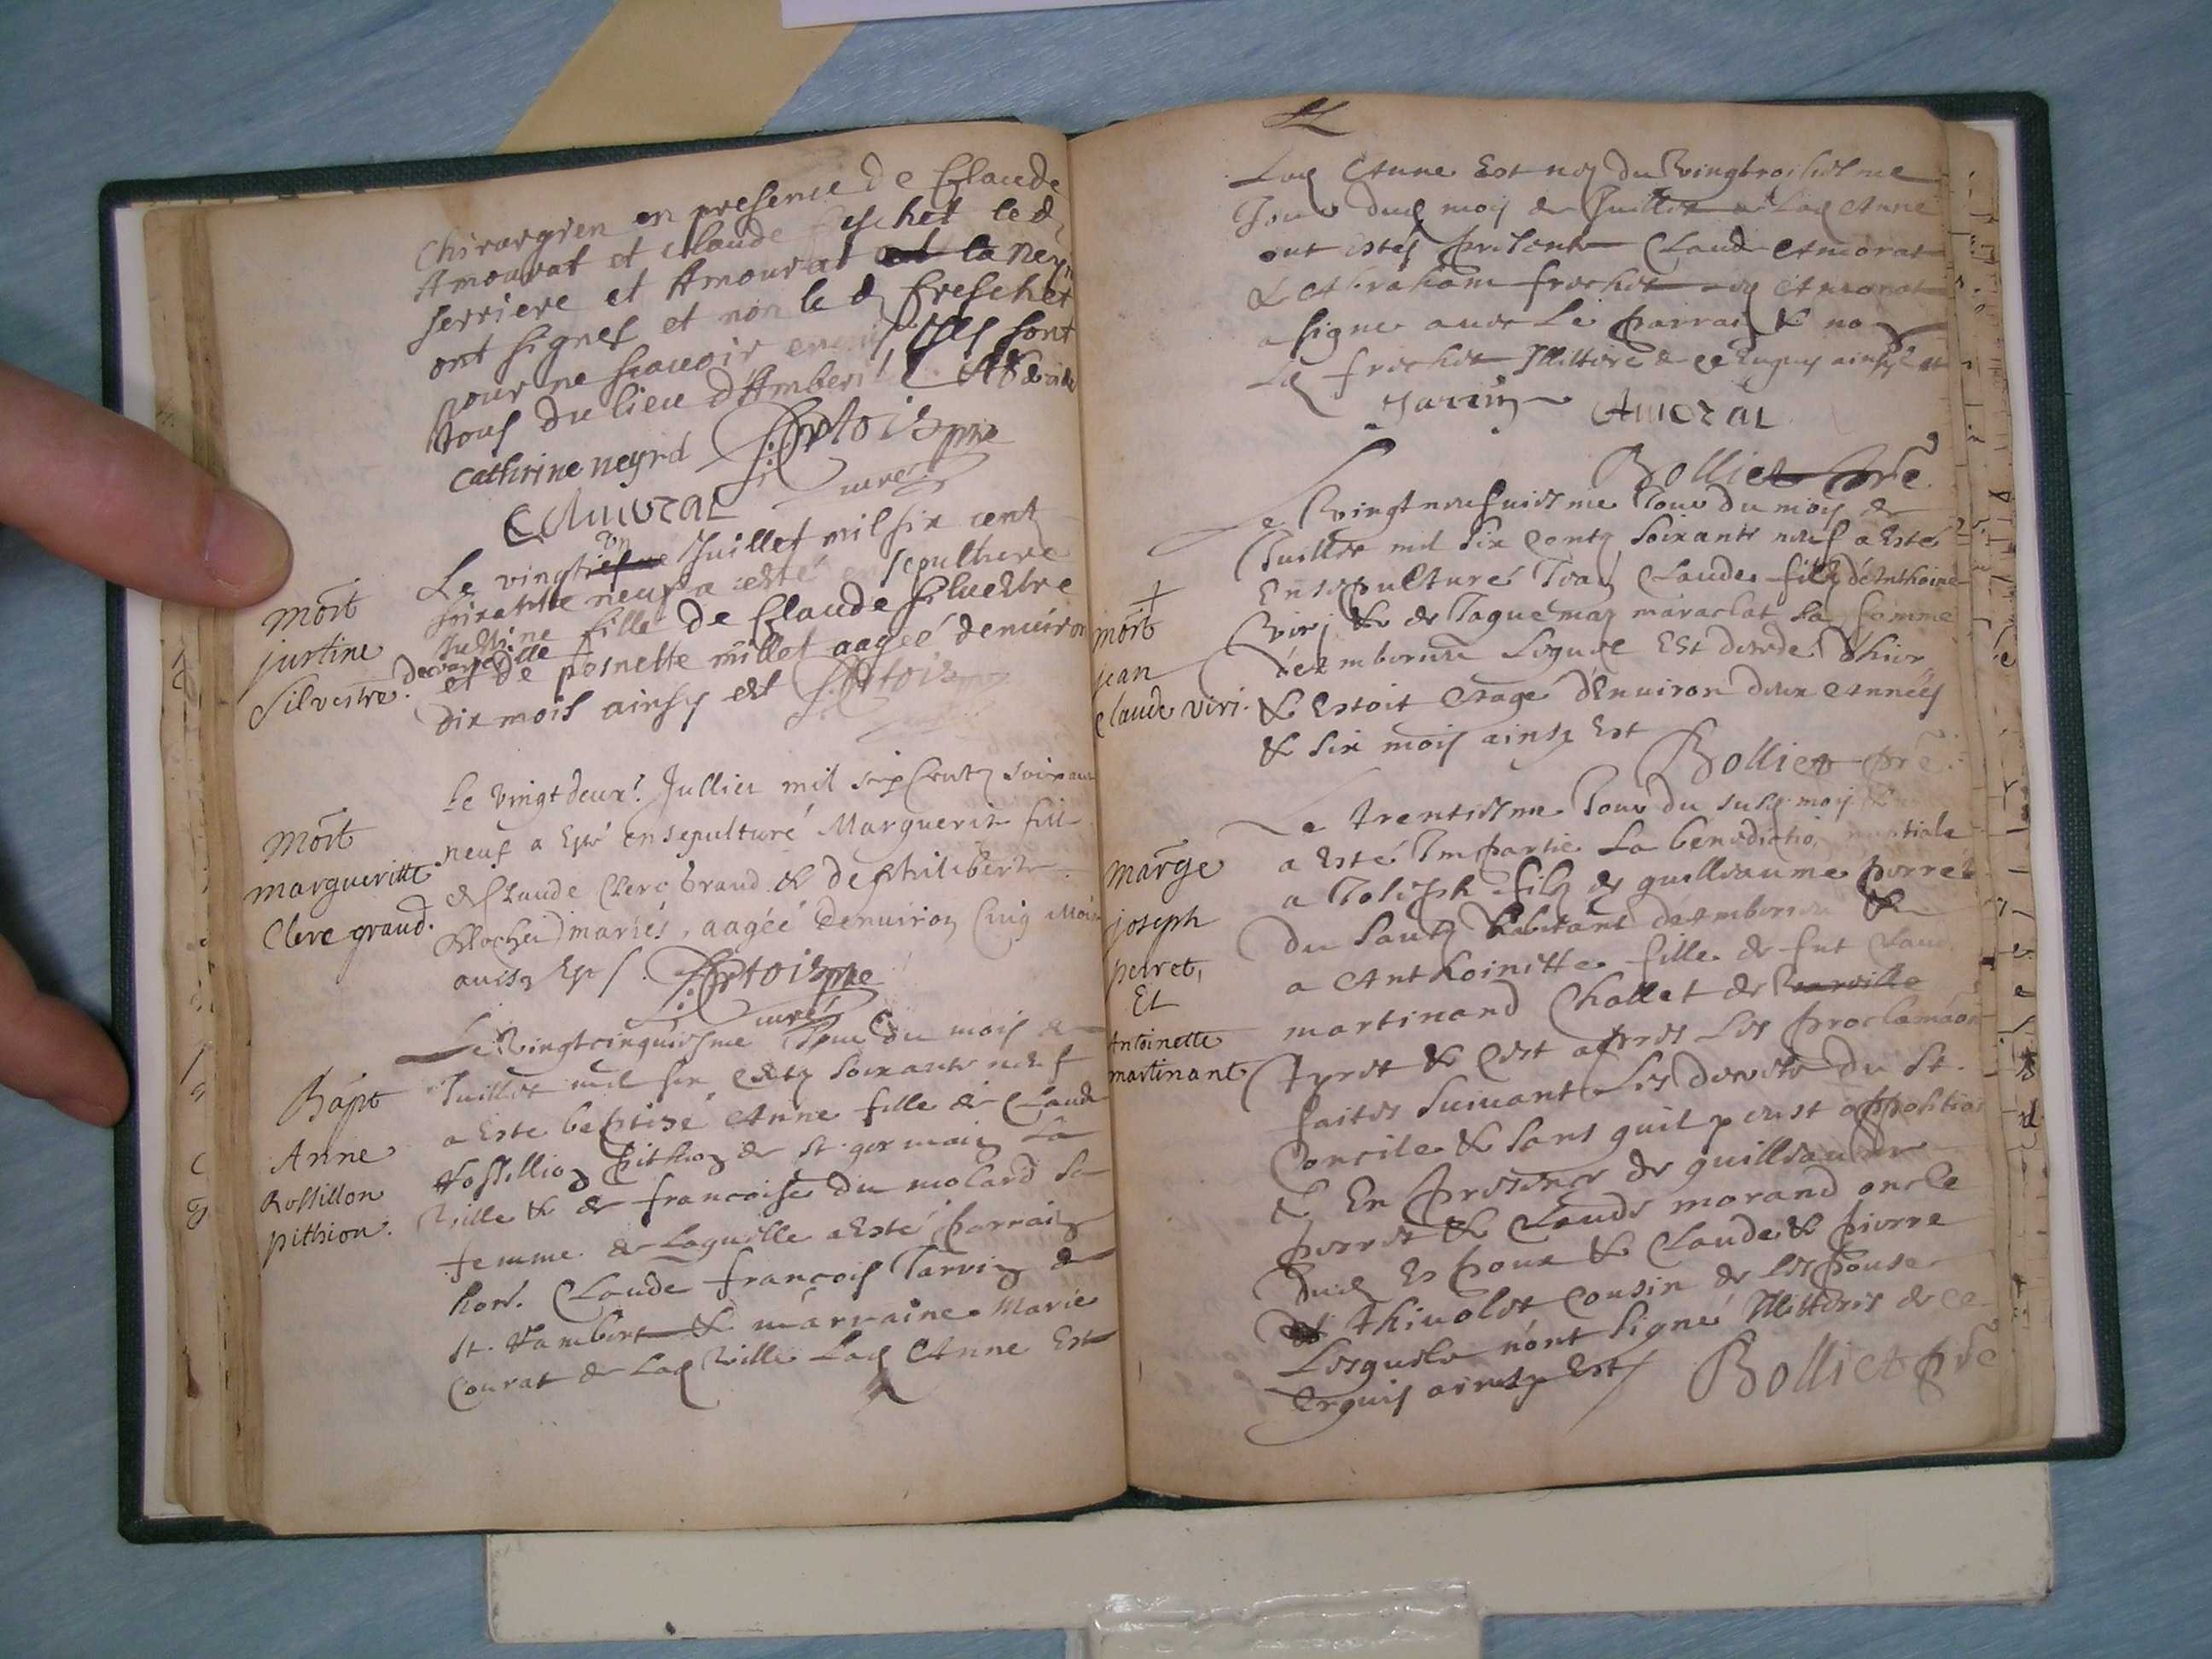 chirurgien en presence de Claude
Amourat et claude freschet led
serriere et Amourat et la neyrd
ont signes et non le d freschet
pour ne scavoir enquis Ils sont
tous du lieu d'Amberi
Catherine neyrd
curé
Amorat
Mort
justine
Silvestre.
Le vingt un Juillet mil six cent
soixante neuf a esté en sepulture
Justine fille de Claude Siluestre
de varville
et de pernette millet aagee denuiron
dix mois ainsy est
Mort
margueritte
Clerc graud.
Le vingt deux. Jullier mil six Centz soixante
neuf a esté ensepulturé Marguerite fille
de Claude Clerc Graud & de philiberte
Rochei mariés, aagée denuiron Cinq Mois
ainsy est
curé
Bapt
Anne
Rossillon
pithion.
Le Vingtcinquiesme Jour du mois de
Juillet mil six centz soixante neuf
a este baptisé Anne fille de Claude
Rossillion pithion de st germain La
Ville & de francoise du molard sa
femme de Laquelle a Esté parrain
hon. Claude francois Jarrin de
st. Rambert & marraine Marie
Courat de Lad Ville Lad Anne Est
Lad Anne Est nee du Vingtroisiesme
Jour dud mois de Juillet a Lad Anne
ont estés presents Claude Amorat
& Abraham frechet led Amorat
a signe avec Le parrain & non
Led frechet Illitere de ce Enquis ainsy est
Jarrin Amorat
Bolliet pre
+
mort
jean
claude viri.
Le Vingt neufuiesme Jour du mois de
Juillet mil six Centz soixante neuf a Esté
Ensepulturé Jean Claude filz d'Anthoine
Viri & de Jaquemaz maraclat sa femme
d'Ambernieu Lequel Est decede d'hier
& Estoit Eage d'Enuiron deux Années
& six mois ainsy Est
Bolliet pre
Marge
joseph
perret,
Et
Antoinette
martinant
Le trentiesme Jour du susd mois
a Esté Impartie La benediction nuptiale
a Joseph filz de guilliaume perret
du Sautz habitant d'Ambernieu &
a Anthoinette fille de fut Claude
martinand Challet de Varville
Tyret & Cest apres Les proclamaons
faites suiuant Les decrets du st.
Concile & sans quil y eust opposition
& En presence de guilliaume
perret & Claude morand oncle
dud Espoux & Claude & pierre
thiuolet cousin de Lespouse
Lesquels n'ont signé Illiteres de ce
Enquis ainsy Est
Bolliet pre